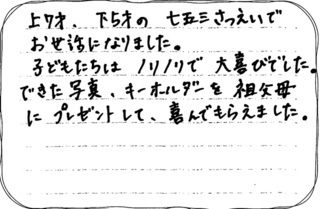 上7才、下5才の 七五三さつえいで
お世話になりました。
子どもたちは ノリノリで 大喜びでした。
できた写真、キーホルダーを 祖父母
に プレゼントして、喜んでもらえました。